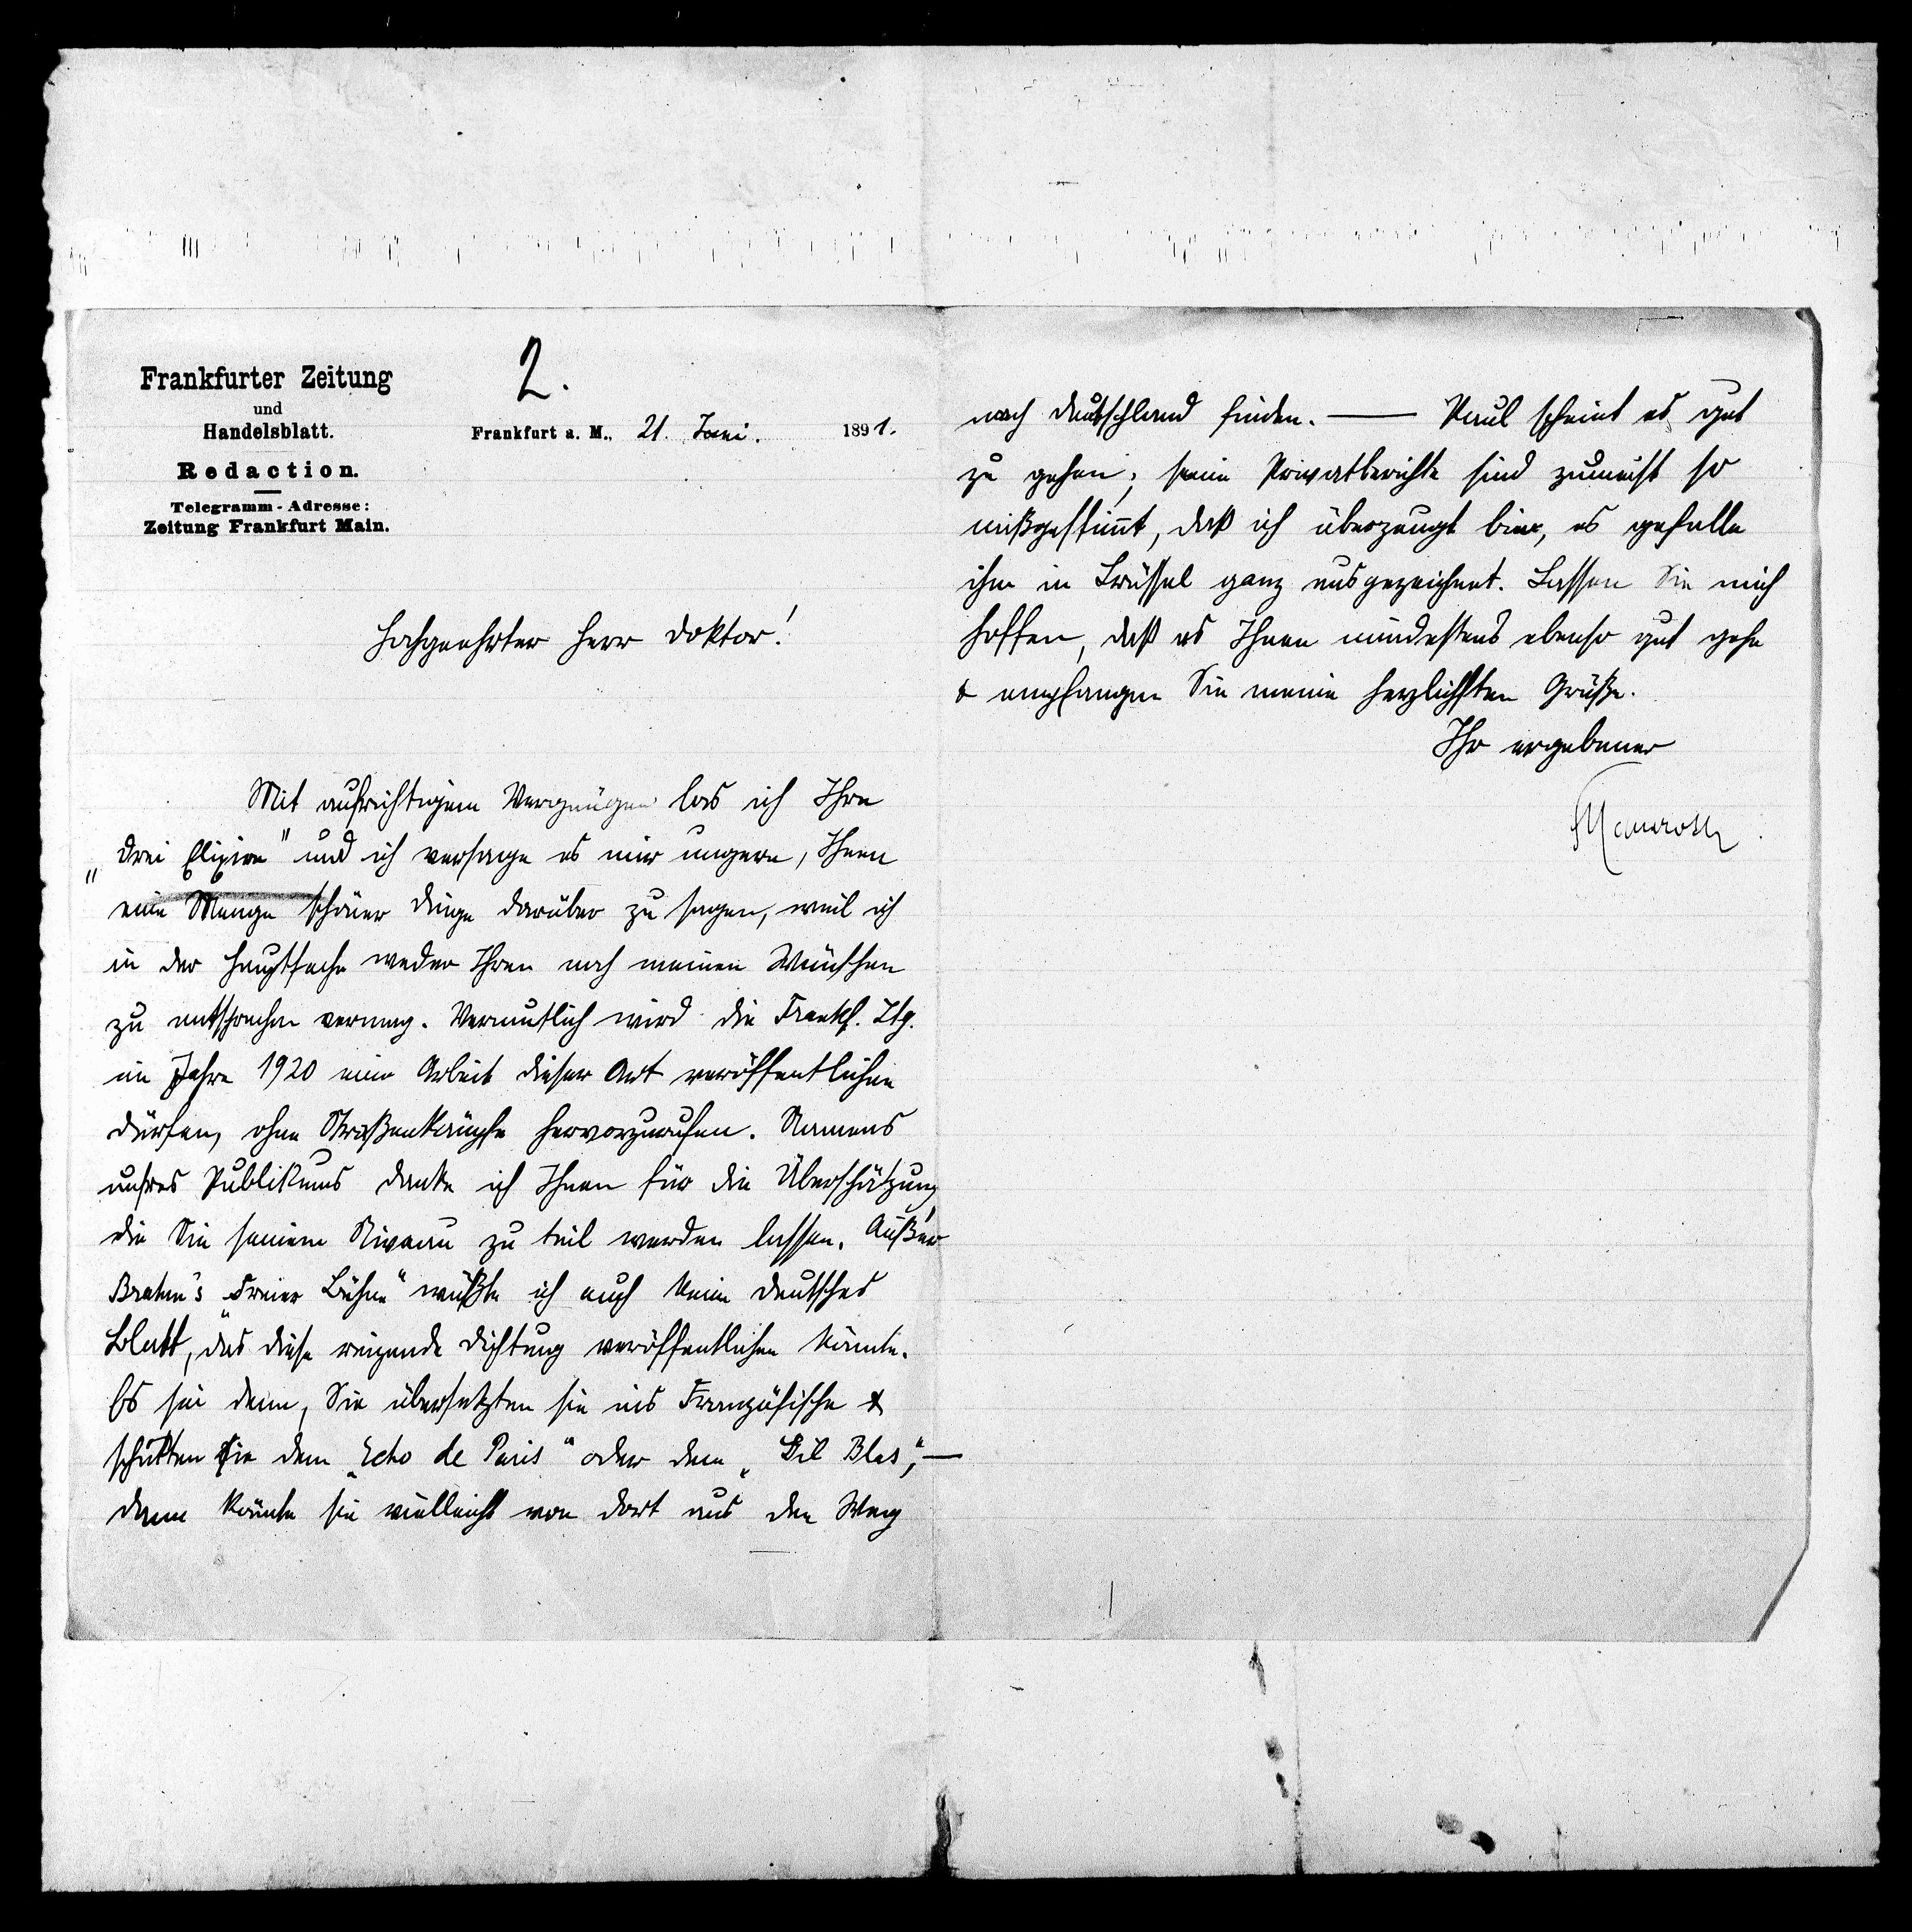 2.
Frankfurter Zeitung
und
Handelsblatt.
Redaction.
Telegramm-Adresse:
Zeitung Frankfurt Main.
Frankfurt a. M., 21. Juni. 1891.
Hochgeehrter Herr Doktor!
Mit aufrichtigem Vergnügen las ich Ihre
„drei Elixire“ und ich versage es mir ungern, Ihnen
eine Menge schöner Dinge darüber zu sagen, weil ich
in der Hauptsache weder Ihren noch meinen Wünschen
zu entsprechen vermag. Vermutlich wird die Frankf. Ztg.
im Jahre 1920 eine Arbeit dieser Art veröffentlichen
dürfen, ohne Straßenkämpfe hervorzurufen. Namens
unsres Publikums danke ich Ihnen für die Überschätzung
die Sie seinem Niveau zu teil werden lassen. Außer
Brahm's „Freier Bühne“ wüßte ich auch kein deutsches
Blatt, das diese reizende Dichtung veröffentlichen könnte.
Es sei denn, Sie übersetzten sie ins Französische &
schickten sie dem „Echo de Paris“ oder dem „Gil Blas“, —
dann könnte sie vielleicht von dort aus den Weg
nach Deutschland finden. — Paul scheint es gut
zu gehen; seine Privatberichte sind zumeist so
mißgestim̅t, daß ich überzeugt bin, es gefalle
ihm in Brüssel ganz ausgezeichnet. Lassen Sie mich
hoffen, daß es Ihnen mindestens ebenso gut gehe
& empfangen Sie meine herzlichsten Grüße.
Ihr ergebener
FMamroth